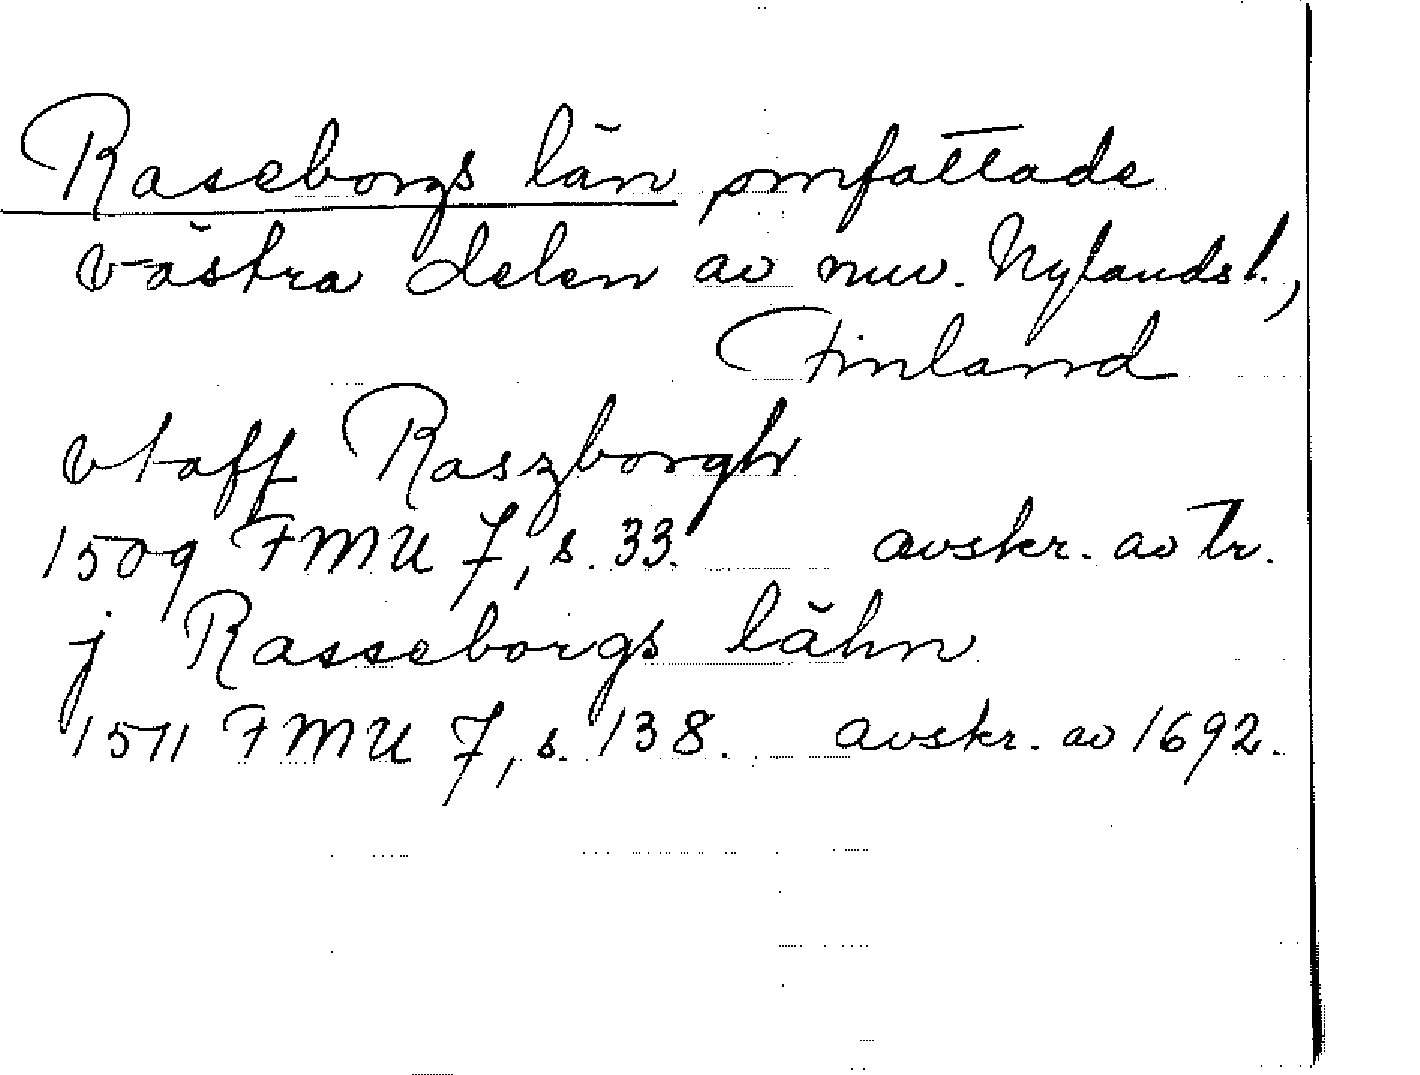 Raseborgs län omfattade
västra delen av nuv. Nylands l.,
Finland
vtaff Raszborgh
1509 FMU 7, s. 33. avskr. av tr.
j Rasseborgs lähn
1511 FMU 7, s. 138. avskr. av 1692.